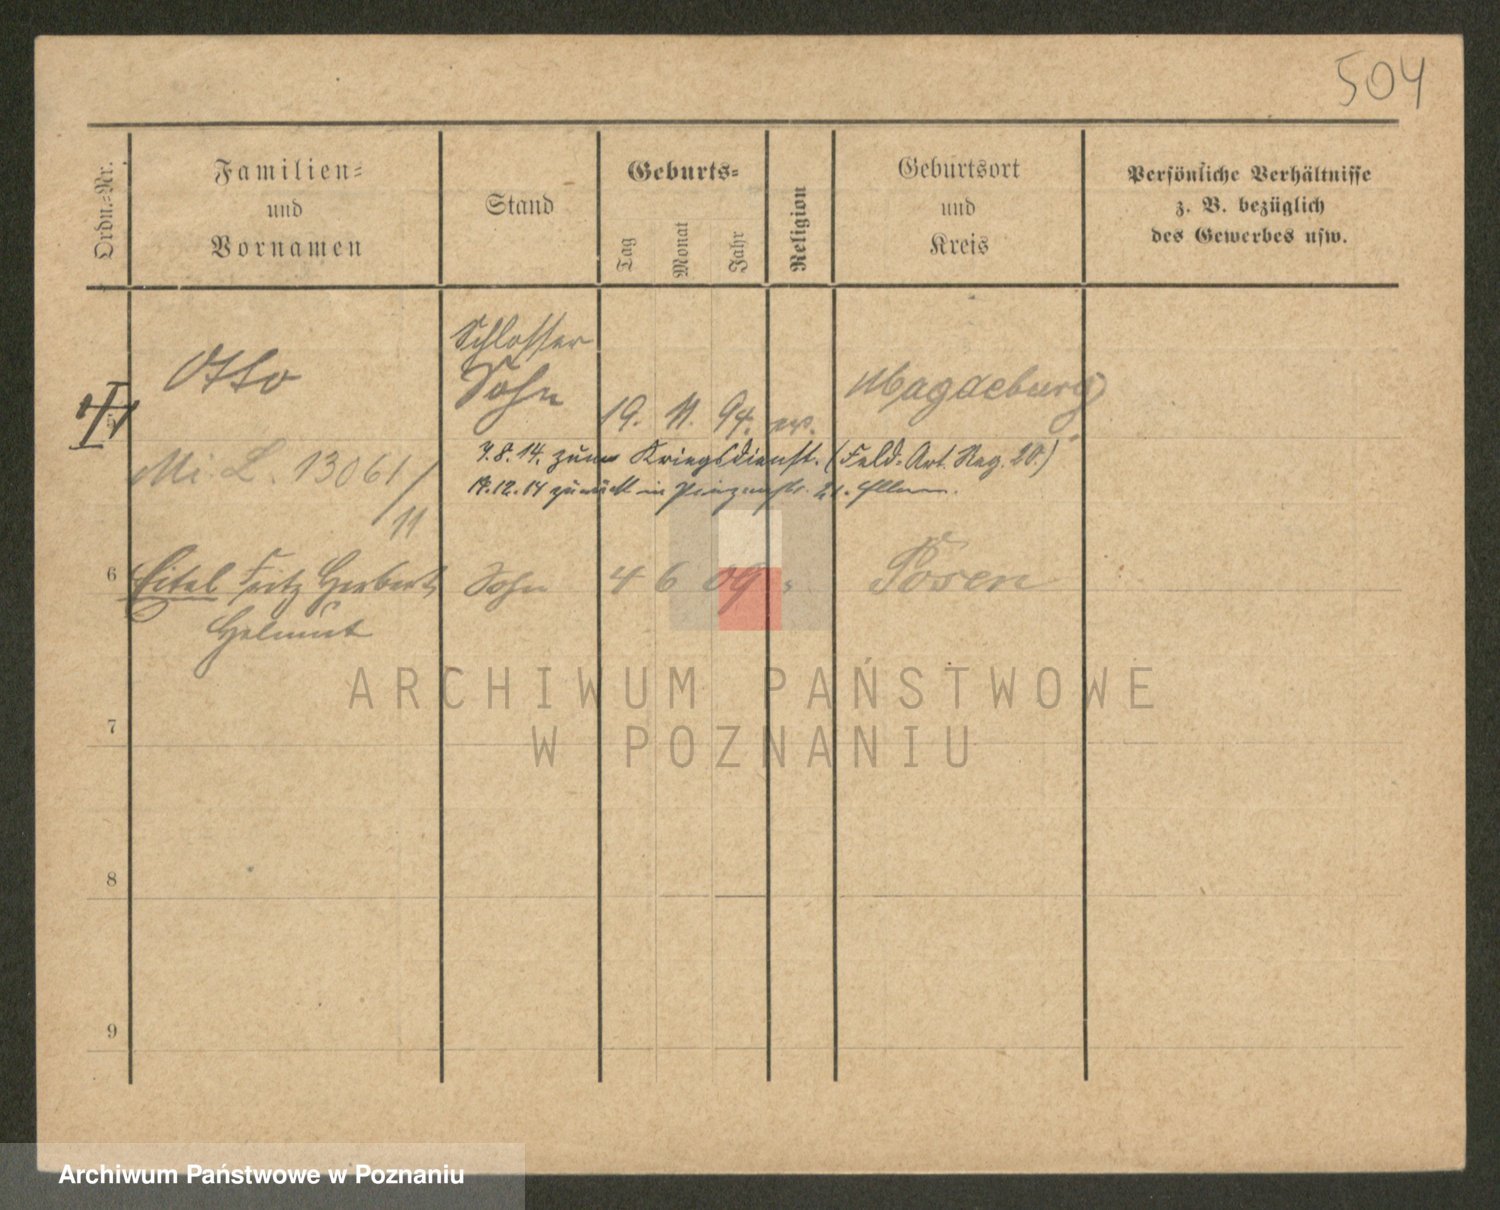 504
Ordn.-Nr.
Familien-
und
Vornamen
Stand
Geburts-
Tag
Monat
Jahr
Religion
Geburtsort
und
Kreis
Persönliche Verhältnisse
z. B. bezüglich
des Gewerbes usw.
5
Otto
Schlosser
Sohn
19. 11. 94.
Magdeburg
7.8.14. zum Kriegsdienst. (Feld-Art. Reg. 20.)
Mi. L. 13061/11
12.14 zurück in 21.
6
Eitel Fritz Herbert
Sohn
4 6 09
Posen
Helmut
ARCHIWUM PAŃSTWOWE
W POZNANIU
7
8
9
Archiwum Państwowe w Poznaniu